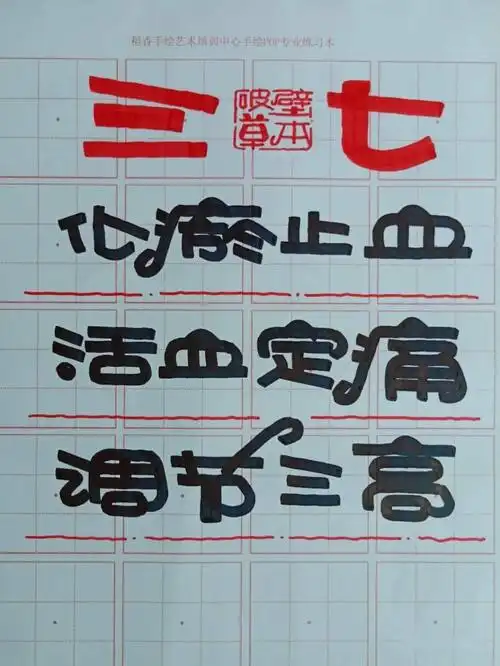 稻香手绘艺术培训中心手绘POP专业练习本
三 破壁草本 七
化瘀止血
活血定痛
调节三高